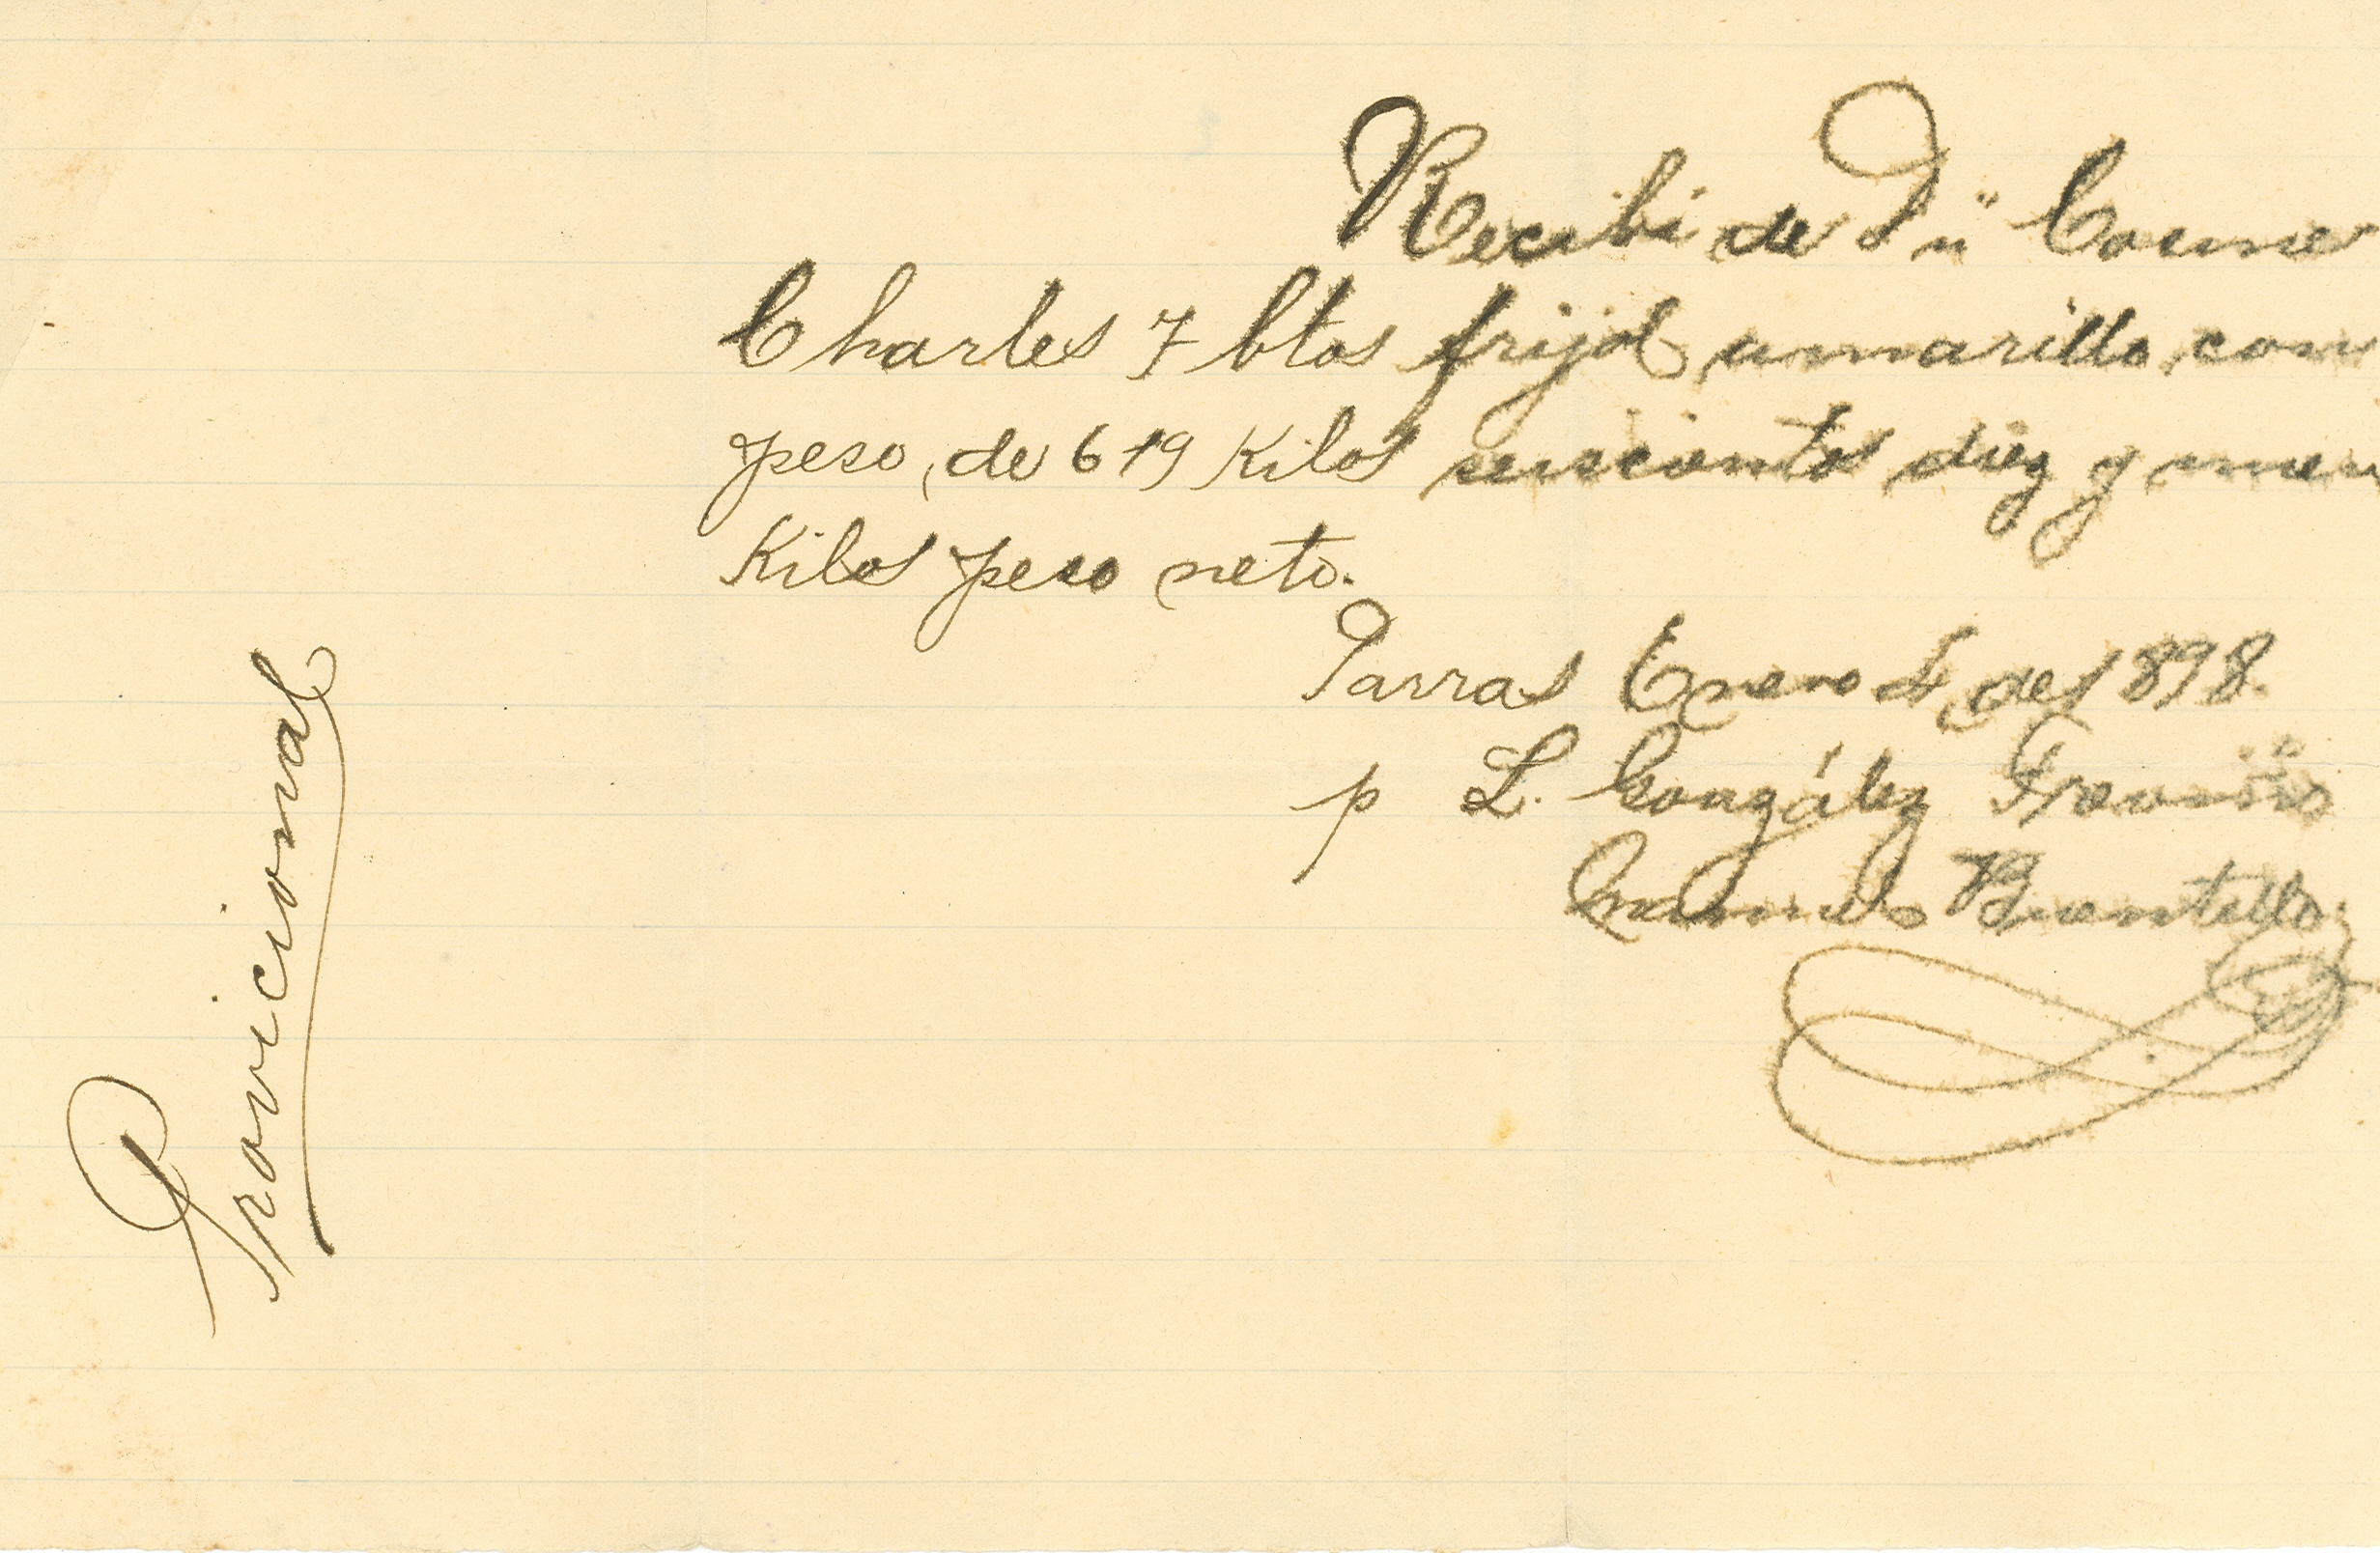 Recibí de Dn Cosme
Charles 7 btos frijol amarillo, con
peso, de 619 Kilos seiscientos diez y nuev
Kilos peso neto.
Parras Enero 4 de 1898.
p L. González Treviño
Bustillo.
Provicional